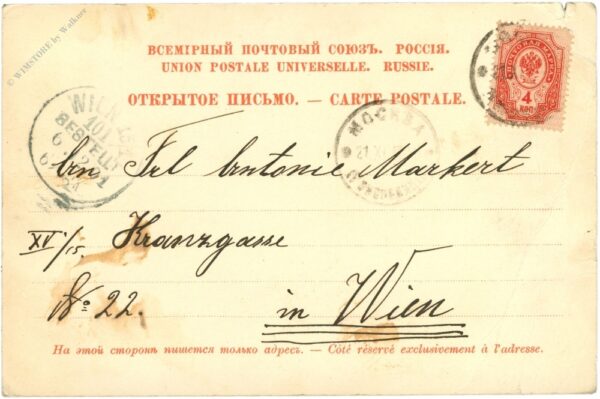 © WIMSTORE by Walkner
ВСЕМІРНЫЙ ПОЧТОВЫЙ СОЮЗЪ. РОССІЯ.
UNION POSTALE UNIVERSELLE. RUSSIE.
ОТКРЫТОЕ ПИСЬМО. — CARTE POSTALE.
4
КОП
WIEN
BESTELLT
МОСКВА
Frl Antonie Markert
XV/15. Kranzgasse
No 22. in Wien
На этой сторонѣ пишется только адресъ. — Côté réservé exclusivement à l'adresse.